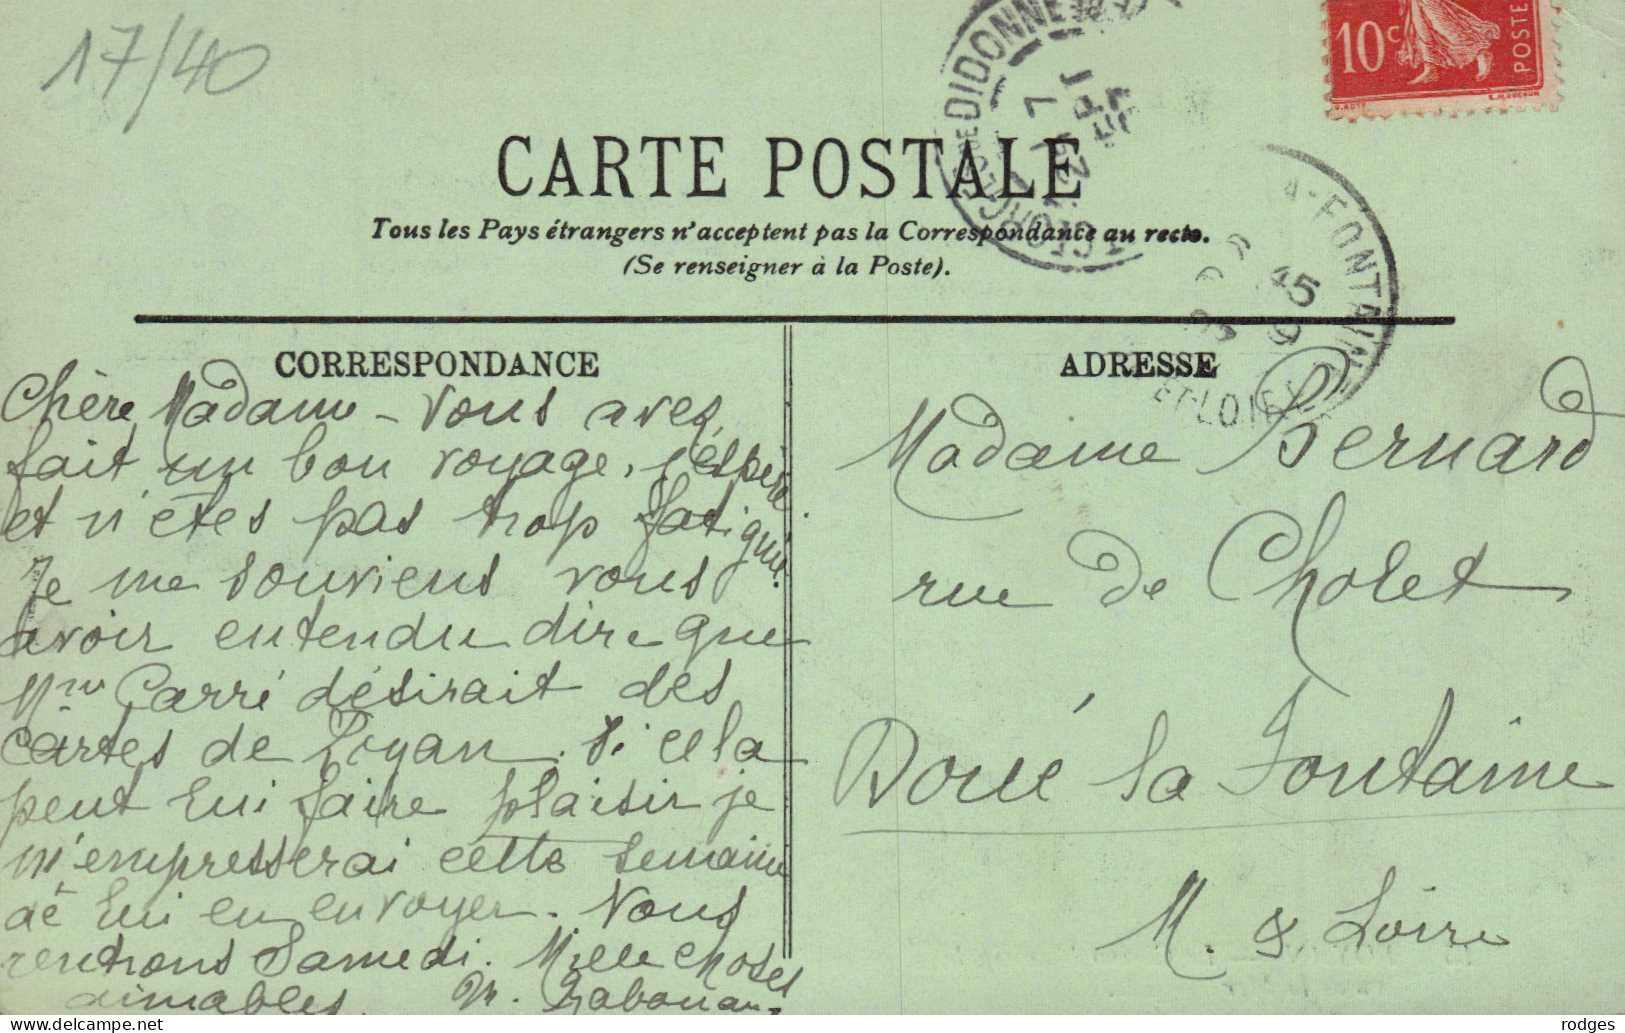 17/40
10c
POSTE
CARTE POSTALE
Tous les Pays étrangers n'acceptent pas la Correspondance au recto.
(Se renseigner à la Poste).
CORRESPONDANCE
Chère Madame – Vous avez
fait un bon voyage, j'espère
et n'êtes pas trop fatiguée.
Je me souviens vous
avoir entendu dire que
Mme Carré désirait des
cartes de Royan. Si cela
peut lui faire plaisir je
m'empresserai cette semaine
de lui en envoyer. Nous
rentrons Samedi. Mille choses
aimables. M.
ADRESSE
Madame Bernard
rue de Cholet
Doué la Fontaine
M. & Loire
DIDONNE
A-FONTAINE
ET-LOIRE
rodges